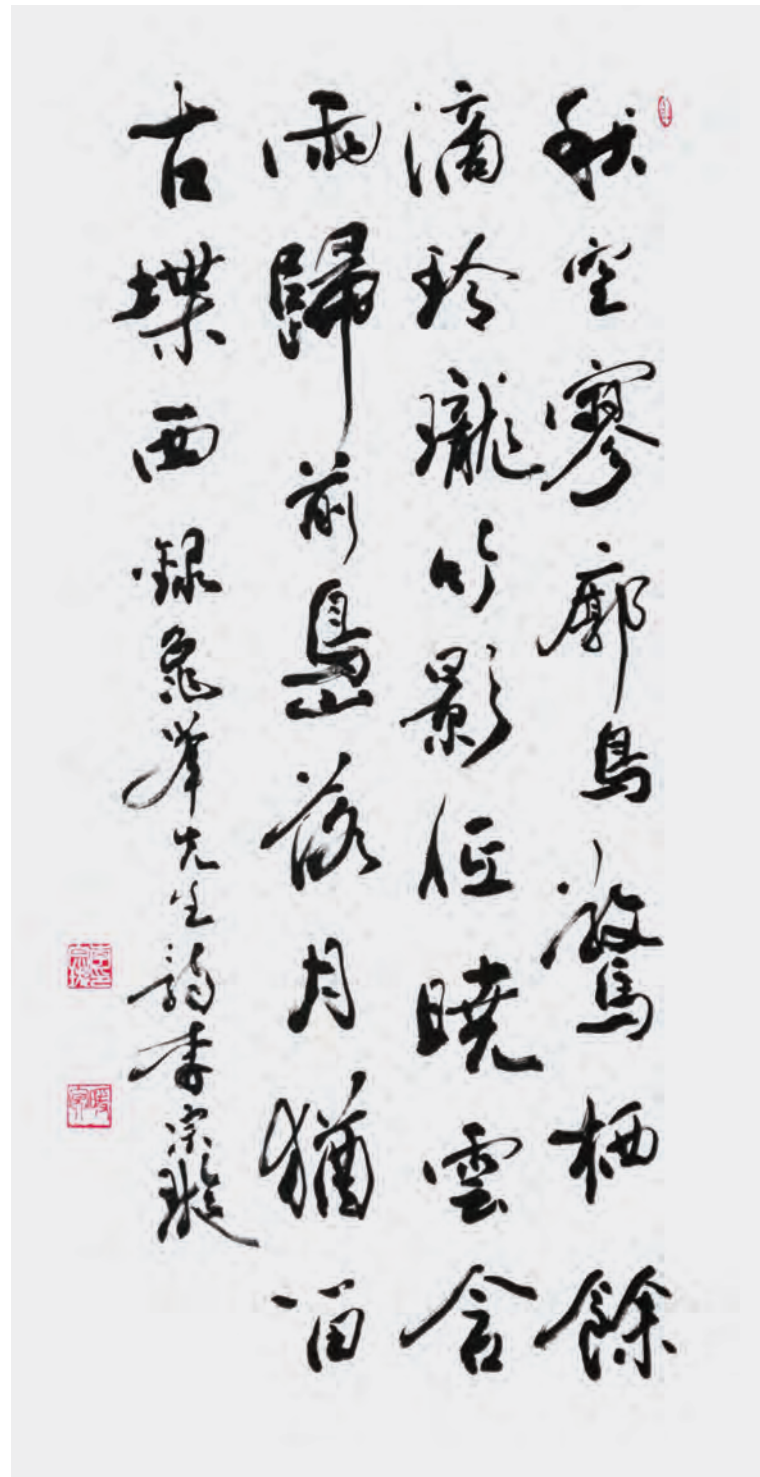 秋空寥廓鳥驚栖餘
滴玲瓏竹影低曉雲含
雨歸前島落月猶留
古堞西 錄龜峯先生詩 李宗璇